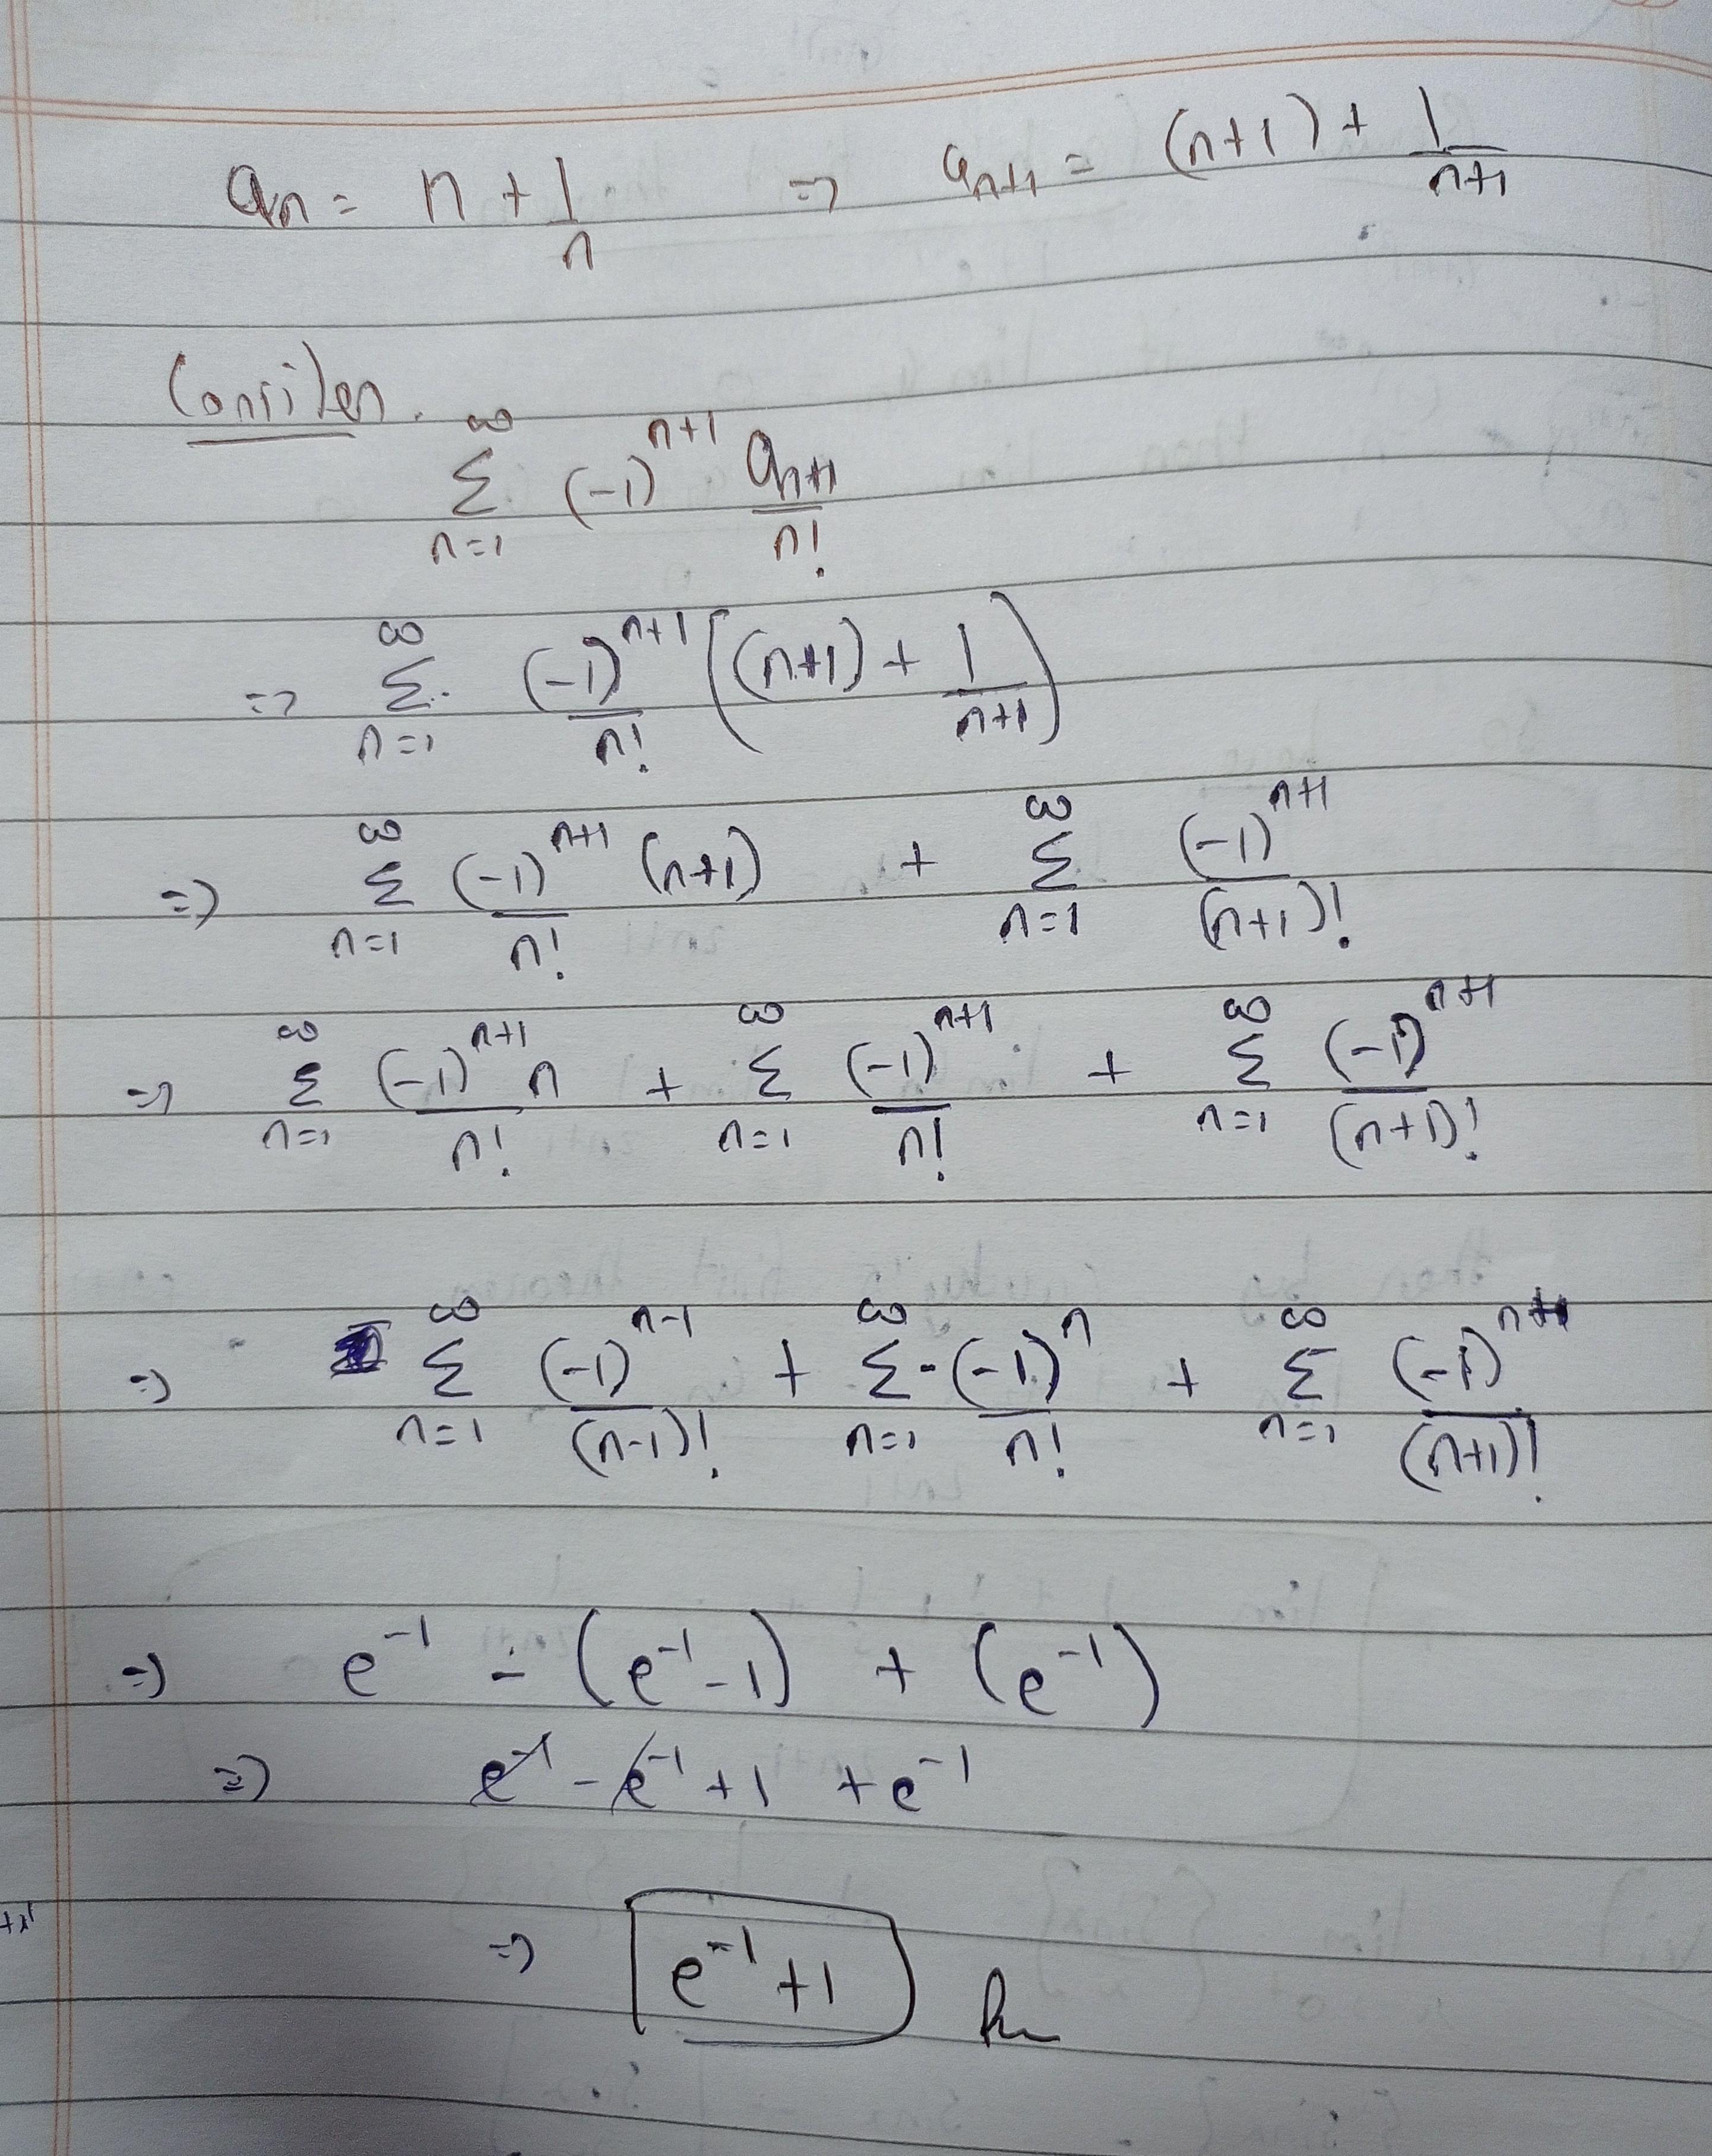 aₙ = n + 1/n ⇒ aₙ₊₁ = (n+1) + 1/(n+1)
Consider.
∞∑n=1 (-1)ⁿ⁺¹ aₙ₊₁/n!
⇒ ∞∑n=1 (-1)ⁿ⁺¹/n! ((n+1) + 1/(n+1))
⇒ ∞∑n=1 (-1)ⁿ⁺¹ (n+1)/n! + ∞∑n=1 (-1)ⁿ⁺¹/(n+1)!
⇒ ∞∑n=1 (-1)ⁿ⁺¹ n/n! + ∞∑n=1 (-1)ⁿ⁺¹/n! + ∞∑n=1 (-1)ⁿ⁺¹/(n+1)!
⇒ ∞∑n=1 (-1)ⁿ⁻¹/(n-1)! + ∞∑n=1 -(-1)ⁿ/n! + ∞∑n=1 (-1)ⁿ⁺¹/(n+1)!
⇒ e⁻¹ - (e⁻¹-1) + (e⁻¹)
⇒ e⁻¹ - e⁻¹ + 1 + e⁻¹
⇒ e⁻¹ + 1